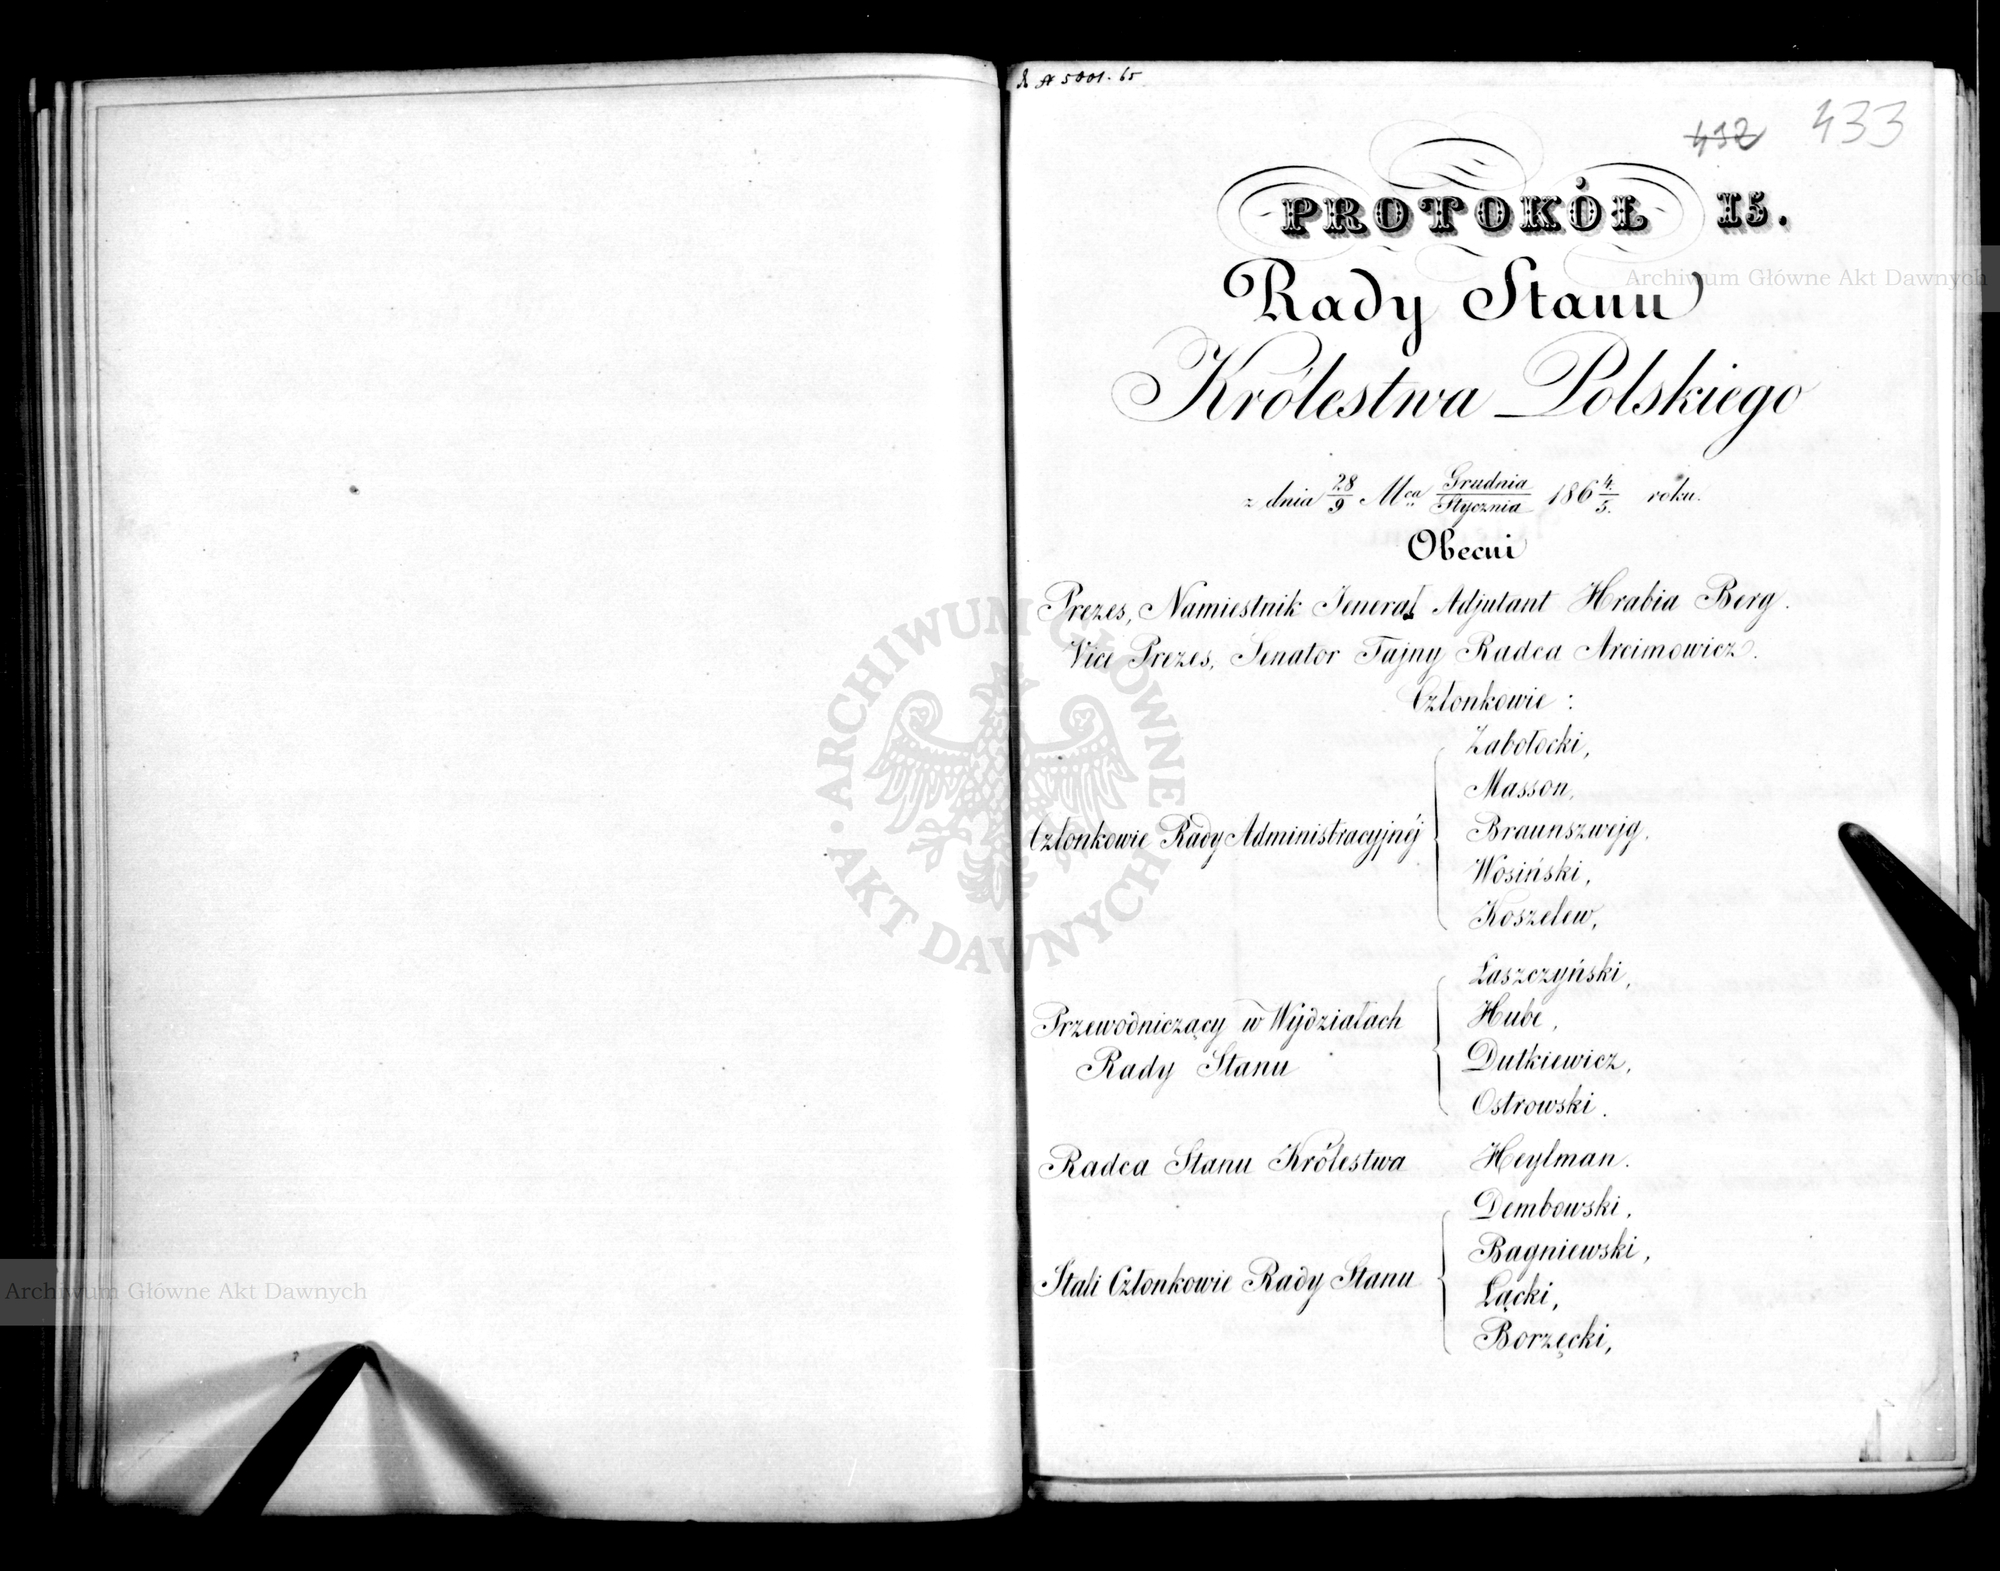 R N 5001. 65
432 433
PROTOKÓŁ 15.
Rady Stanu
Królestwa Polskiego
z dnia 28/9 Mca Grudnia/Stycznia 186 4/5. roku.
Obecni
Prezes, Namiestnik Jenerał Adjutant Hrabia Berg.
Vice Prezes, Senator Tajny Radca Arcimowicz.
Członkowie:
Członkowie Rady Administracyjnéj
Zabołocki,
Masson,
Braunszwejg,
Wosiński,
Koszelew,
Przewodniczący w Wydziałach
Rady Stanu
Łaszczyński,
Hube,
Dutkiewicz,
Ostrowski.
Radca Stanu Królestwa Heylman.
Stali Członkowie Rady Stanu
Dembowski,
Bagniewski,
Łącki,
Borzęcki,
Archiwum Główne Akt Dawnych
Archiwum Główne Akt Dawnych
ARCHIWUM GŁÓWNE AKT DAWNYCH